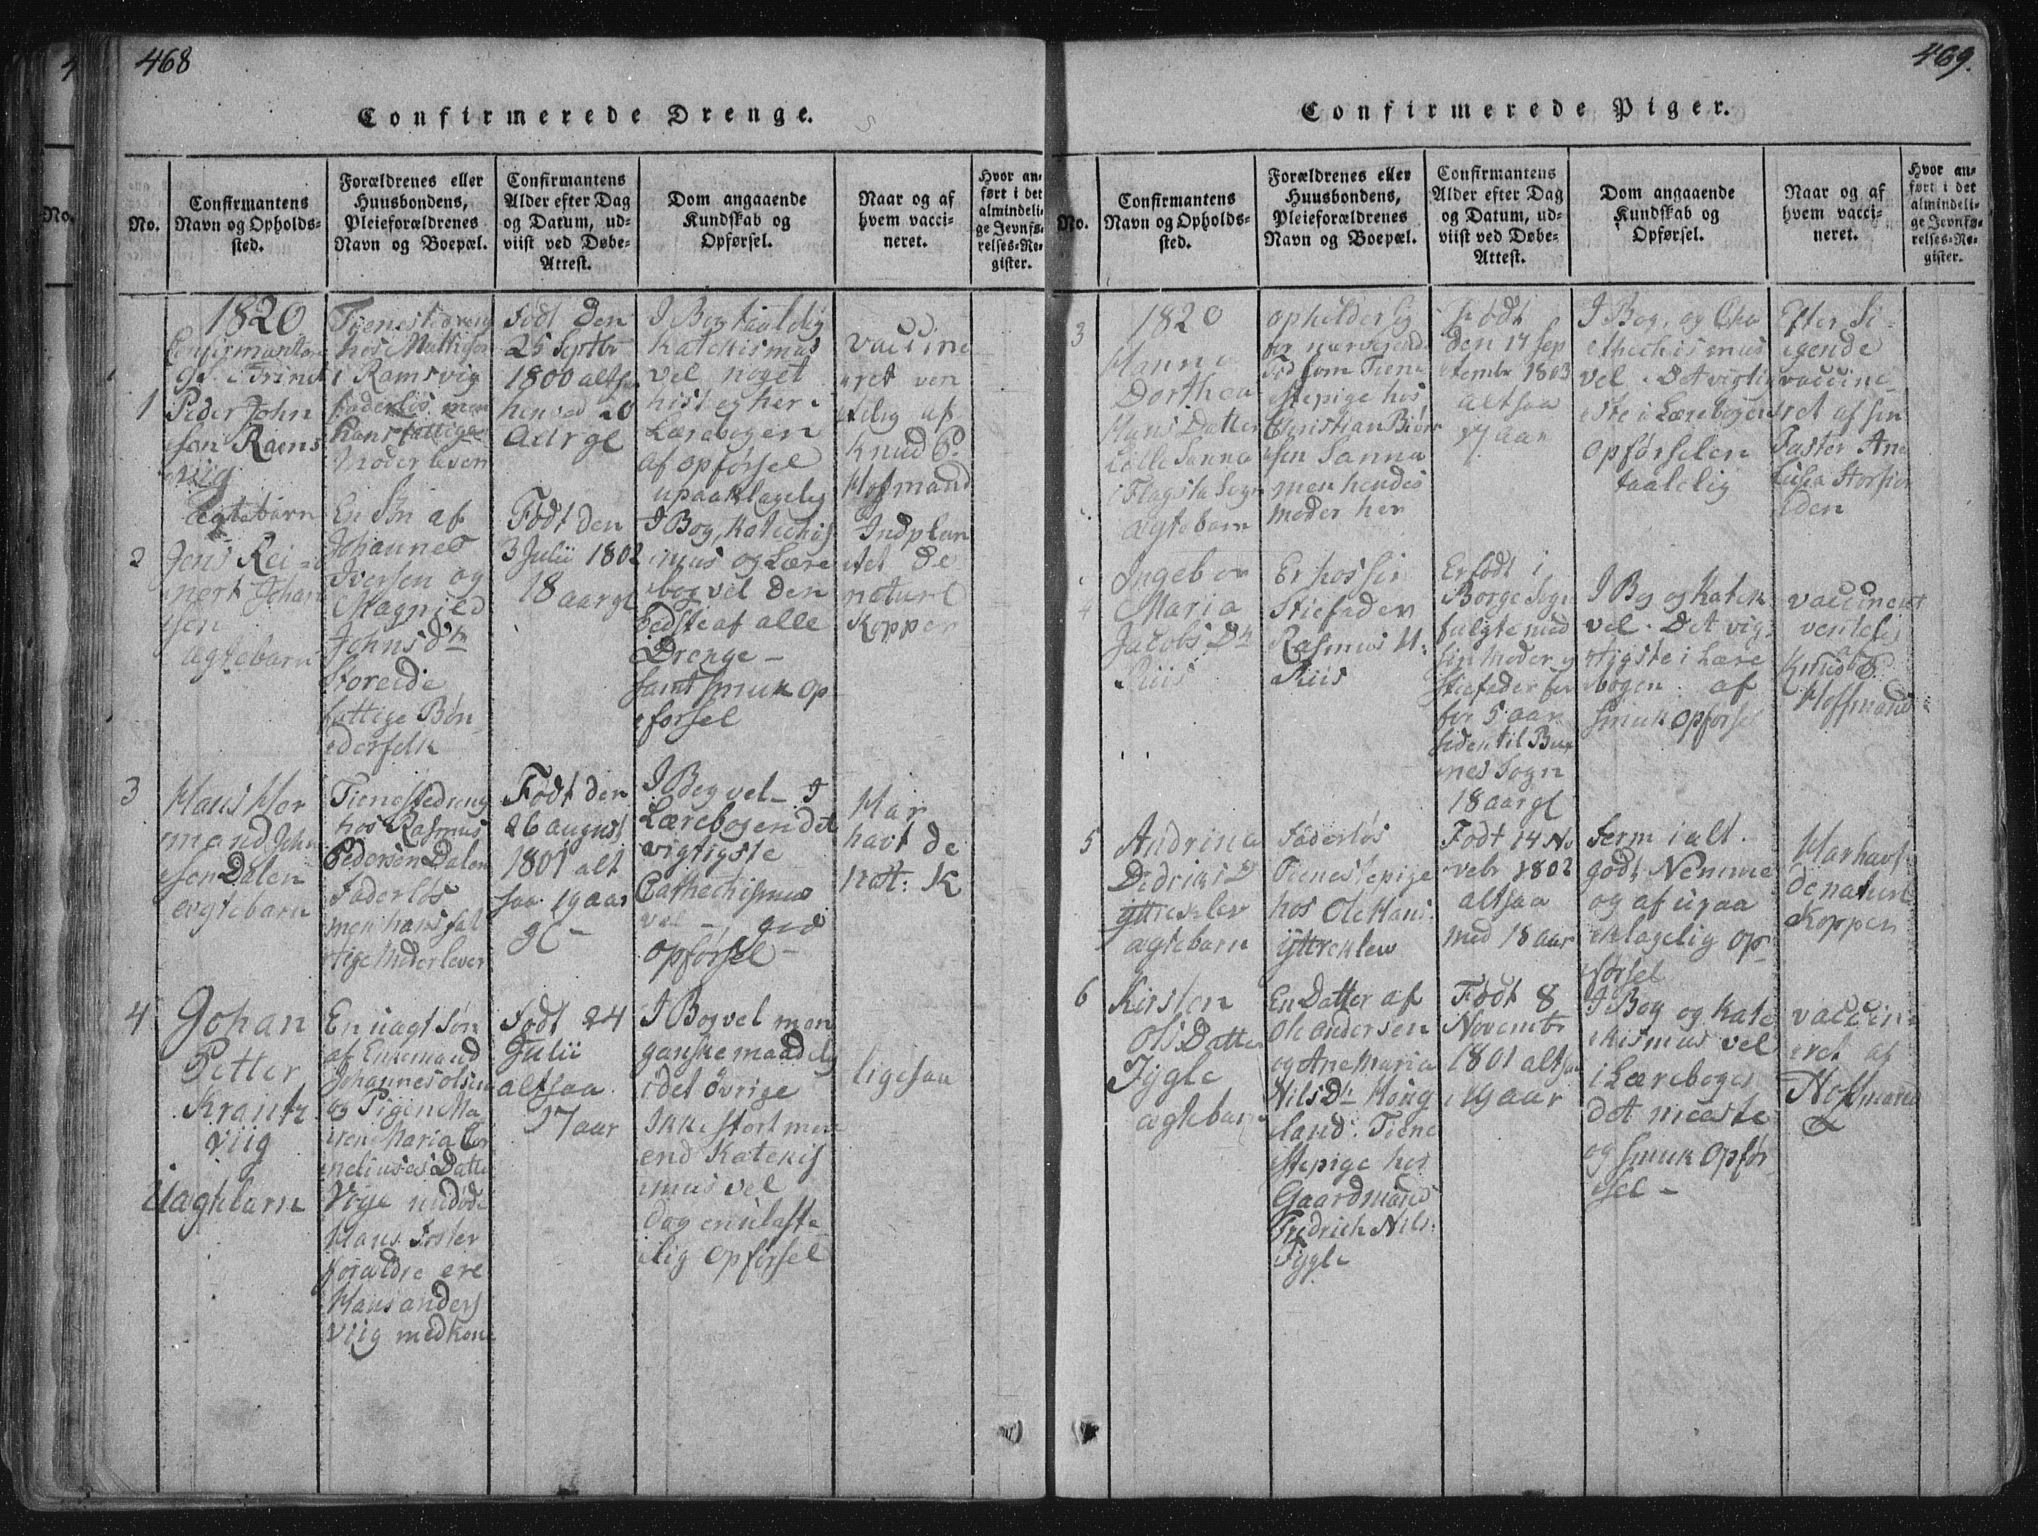 468
Confirmerede Drenge.
No.
Confirmantens
Navn og Opholds-
sted.
Forældrenes eller
Huusbondens,
Pleieforældrenes
Navn og Boepæl.
Confirmantens
Alder efter Dag
og Datum, ud-
viist ved Døbe-
Attest.
Dom angaaende
Kundskab og
Opførsel.
Naar og af
hvem vacci-
neret.
Hvor an-
ført i det
almindeli-
ge Jevnfø-
relses-Re-
gister.
1820
1
Peder John
sen Rams
viig
ægtebarn
Tienestedreng
hos Mattis
i Ramsvig
faderløs men
hans fattige
Moder lever
Født den
25 Septbr
1800 altsaa
henved 20
Aar gl
I Bog taalelig
Katekismus
vel noget
her i
Lærebogen
af opførsel
upaaklagelig
vaccine
ret ven
telig af
Knud P.
Hofmand
2
Jens Rei
nert Johan
sen
ægtebarn
En Søn af
Johannes
Iversen og
Magnild
Johns Dtr
Storeide
fattige Bøn
derfolk
Født den
3 Julii 1802
18 aar gl
I Bog, Katechis
mus og Lære
bog vel den
bedste af alle
Drenge –
samt smuk op
førsel
Indplan
tet de
naturl
Kopper
3
Hans Her
mand John
sen Dalen
ægtebarn
Tienestedreng
hos Rasmus
Pedersen Dalen
Faderløs
men hans fat
tige Moder lever
Født den
26 august
1801 alt
saa 19 aar
gl –
I Bog vel – I
Lærebogen det
vigtigste
Cathechismus
vel – god
opførsel –
Har
havt de
nat: K
4
Johan
Petter
Krantz
Viig
Uægtebarn
En uægt Søn
af Enkemand
Johannes olsen
og Pigen Ma
ren Maria Cor
nelius Datter
Vige nu døde
Hans Foster
forældre ere
Hans anders
Viig med kone
Født 24
Julii
altsaa
17 aar
I Bog vel men
ganske maadelig
i det øvrige
Ikke stort mere
end Katekis
mus vel
dog en ulaste
lig opførsel
ligesaa
469.
Confirmerede Piger.
No.
Confirmantens
Navn og Opholds-
sted.
Forældrenes eller
Huusbondens,
Pleieforældrenes
Navn og Boepæl.
Confirmantens
Alder efter Dag
og Datum, ud-
viist ved Døbe-
Attest.
Dom angaaende
Kundskab og
Opførsel.
Naar og af
hvem vacci-
neret.
Hvor an-
ført i det
almindeli-
ge Jevnfø-
relses-Re-
gister.
3
1820
Hanna
Dorthea
Hans Datter
Lille Sanna
i Flagsta Sogn
ægtebarn
opholder sig
for nærværende
Tid som Tiene
stepige hos
Christian Biørn
sen Sanna
men hendes
moder her
Født
den 17 Sep
tembr 1803
altsaa
17 aar
I Bog, og Cha
thechismus
vel. Det vigtig
ste i Lærebogen
opførselen
taalelig
Efter Si
gende
vaccine
ret af sin
Faster Ane
den
4
Ingebor
Maria
Jacobs Dtr
Riis
Er hos sin
Stiefader
Rasmus H:
Riis
Er født i
Borge Sogn
fulgte med
sin Moder og
Stiefader for
for 5 aar
siden til Bux
nes Sogn
18 aar gl
I Bog og Katek
vel. Det vig
tigste i Lære
bogen af
smuk opførsel
vaccineret
ventelig
af
Knud P.
Hoffmand
5
Andrina
Dedriks D
Yttreklev
ægtebarn
Faderløs
Tienestepige
hos Ole Hans:
Yttreklev
Født 14 No
vebr 1802
altsaa
med 18 aar
Ferm i alt.
godt Nemme
og af upaa
klagelig op
førsel
Har havt
de naturl
Kopper
6
Kirsten
Ols Datter
Tygle
ægtebarn
En Datter af
Ole andersen
og Ane Maria
Nils Dtr Houg
land. Tiene
stepige hos
Gaardmand
Fredrich Nils:
Tygle
Født 8
Novembr
1801 altsaa
19 aar
I Bog og Kate
kismus vel
i Læreboge
det meeste
og smuk opfør
sel –
vaccin
eret af
Hoffmand